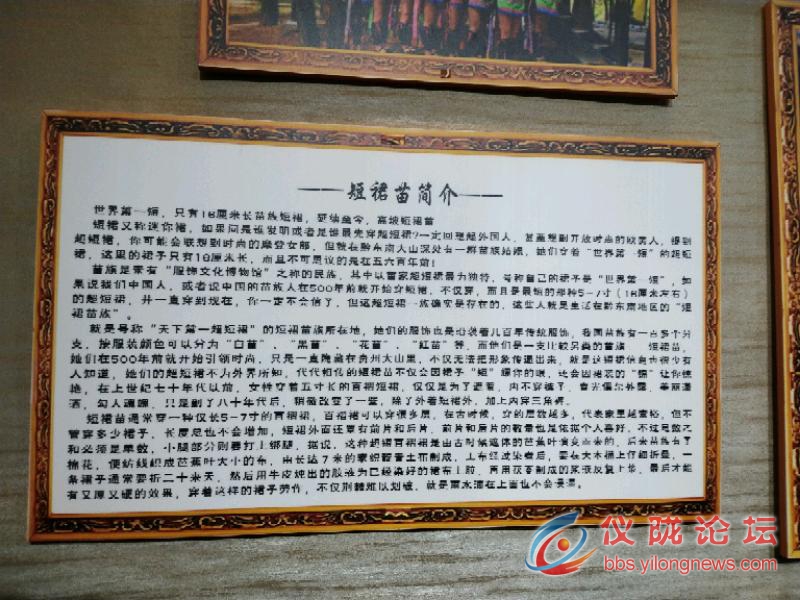 短裙苗简介
世界第一短，只有18厘米长苗族短裙，延续至今，高坡短裙苗
短裙又称迷你裙，如果问是谁发明或者是谁最先穿超短裙?一定回想起外国人，甚至想到开放时尚的欧美人，提到
超短裙，你可能会联想到时尚的摩登女郎，但就在黔东南大山深处有一群苗族姑娘，她们穿着“世界第一短”的超短
裙，这里的裙子只有18厘米长，而且不可思议的是在五六百年前!
苗族是素有“服饰文化博物馆”之称的民族，其中以雷家超短裙最为独特，号称自己的裙子是“世界第一短”，如
果说我们中国人，或者说中国的苗族人在500年前就开始穿短裙，不仅穿，而且是最短的那种5-7寸（18厘米左右）
的超短裙，并一直穿到现在，你一定不会信了，但这超短裙一族确实是存在的，这些人就是生活在黔东南地区的“短
裙苗族”。
就是号称“天下第一超短裙”的短裙苗族所在地，她们的服饰也是沿袭着几百年传统服饰，我国苗族有一百多个分
支，按服装颜色可以分为“白苗”、“黑苗”、“花苗”、“红苗”等，而他们是一支比较另类的苗族——短裙苗，
她们在500年前就开始引领时尚，只是一直隐藏在贵州大山里，不仅无法把形象传递出来，就是这短裙信息也很少有
人知道，她们的超短裙不为外界所知，代代相传的短裙苗不仅会因裙子“短”蝶你的眼，还会因裙装的“锦”让你惊
艳，在上世纪七十年代以前，女性穿着五寸长的百褶短裙，仅仅是为了遮羞，内不穿裤子，春光偶尔外露，美丽潇
洒，勾人魂魄，只是到了八十年代后，稍微改变了一些，除了外着短裙外，加上内穿三角裤。
短裙苗通常穿一种仅长5-7寸的百褶裙，百褶裙可以穿很多层，在古时候，穿的层数越多，代表家里越富裕，但不
管穿多少裙子，长度是也不会增加，短裙外面还要有前片和后片，前片和后片的数量也是依据个人喜好，不过总数之
和必须是单数，小腿部分则要打上绑腿，据说，这种超短百褶裙是由古时候遮体的芭蕉叶演变而来的，后来苗族有了
棉花，便纺线织成芭蕉叶大小的布，由长达7米的素织靛青土布制成，土布经过染着后，要在大木桶上仔细折叠，一
条裙子通常要折二十来天，然后用牛皮炖出的胶液为已经染好的裙布上胶，再用茯苓制成的浆液反复上浆，最后才能
有又厚又硬的效果，穿着这样的裙子劳作，不仅荆棘难以划破，就是雨水滴在上面也不会浸湿。
仪陇论坛
bbs.yilongnews.com